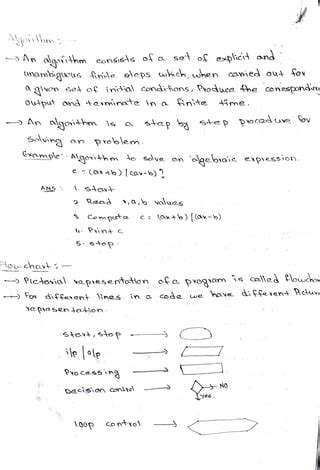 Algorithm :-
→ An algorithm consists of a set of explicit and
unambiguous finite steps which, when carried out for
a given set of initial conditions, Produce the corresponding
output and terminate in a finite time.
→ An algorithm is a step by step procedure for
Solving an problem.
Example:- Algorithm to solve an algebraic expression.
c = (ax+b) / (ax-b) ?
Ans : 1. start
2. Read x,a,b values
3. Compute c = (ax+b) / (ax-b)
4. Print c
5. stop.
Flow chart :-
→ Pictorial representation of a program is called flowchar
→ For different lines in a code we have different Pictur
representation.
Start, stop →
i/p / o/p →
Processing →
Decision control → NO
yes
loop control →